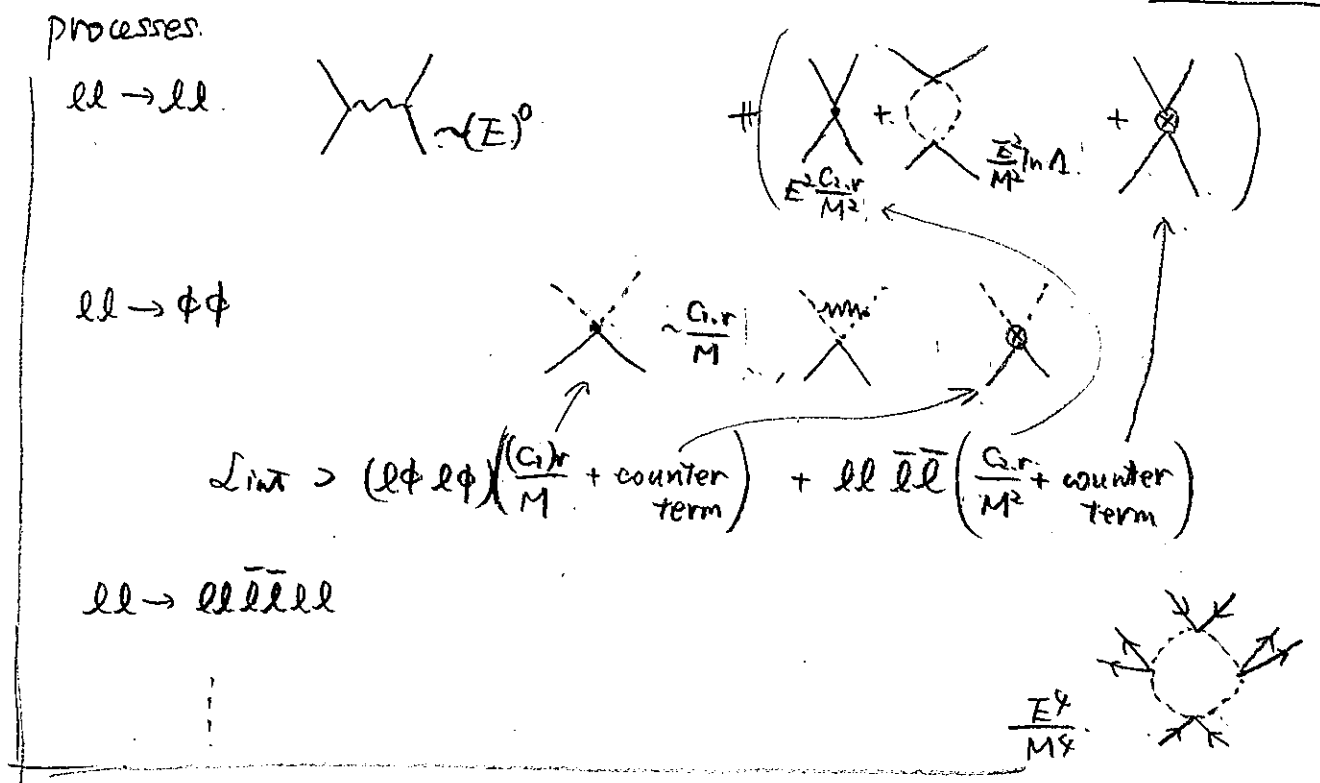 processes.
ll → ll. ~(E)⁰ + ( + + )
E² C₂,r/M² E²/M² ln Λ.
ll → ϕϕ ~ C₁,r/M
Lint > (lϕ lϕ) ((C₁)r/M + counter term) + ll l̄l̄ (C₂,r/M² + counter term)
ll → ll l̄l̄ ll
E⁴/M⁴